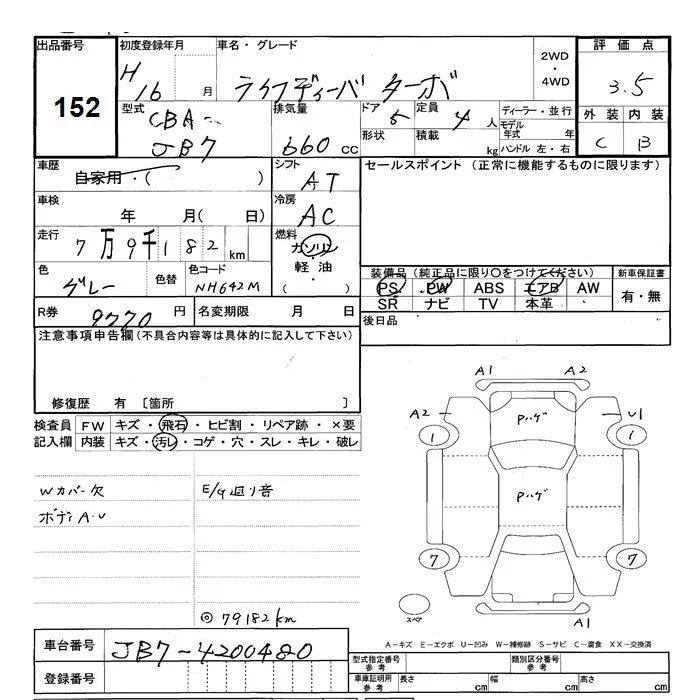 出品番号 初度登録年月 車名・グレード 2WD・4WD 評価点
152 H16 月 ライフディーバ ターボ 3.5
型式 CBA-JB7 排気量 660 cc ドア 5 定員 4 人 ディーラー・並行 外装 内装
形状 積載 kg モデル年式 年 ハンドル 左・右 C B
車歴 自家用・( ) シフト AT セールスポイント (正常に機能するものに限ります)
車検 年 月( 日) 冷房 AC
走行 7万9千182 km 燃料 ガソリン・軽油・( )
色 グレー 色替 色コード NH642M 装備品 (純正品に限り〇をつけてください) 新車保証書
PS PW ABS エアB AW 有・無
SR ナビ TV 本革
R券 9770 円 名変期限 月 日 後日品
注意事項申告欄 (不具合内容等は具体的に記入して下さい)
修復歴 有 [箇所 ]
検査員 FW キズ・飛石・ヒビ割・リペア跡・×要
記入欄 内装 キズ・汚レ・コゲ・穴・スレ・キレ・破レ
Wカバー欠 E/G廻り音
ボディA・U
◎79182km
A1 A2
A2 U1
Pハゲ
1 1
Pハゲ
7 7
スペア
A1
A-キズ E-エクボ U-凹み W-補修跡 S-サビ C-腐食 XX-交換済
車台番号 JB7-4200480
型式指定番号 参考 類別区分番号 参考
登録番号 車庫証明用 参考 長さ cm 幅 cm 高さ cm